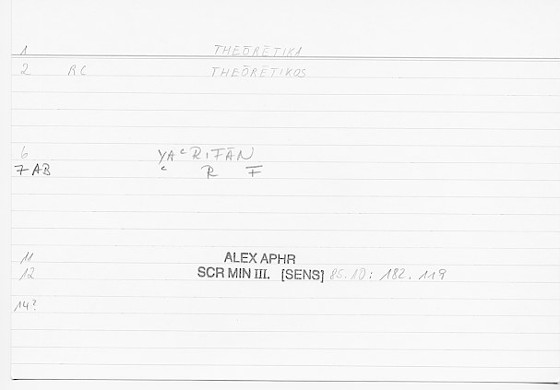 1 THEŌRĒTIKA
2 RC THEŌRĒTIKOS
6 YAʿRIFĀN
7 AB ʿ R F
11 ALEX APHR
12 SCR MIN III. [SENS] 85.10: 182.119
14?